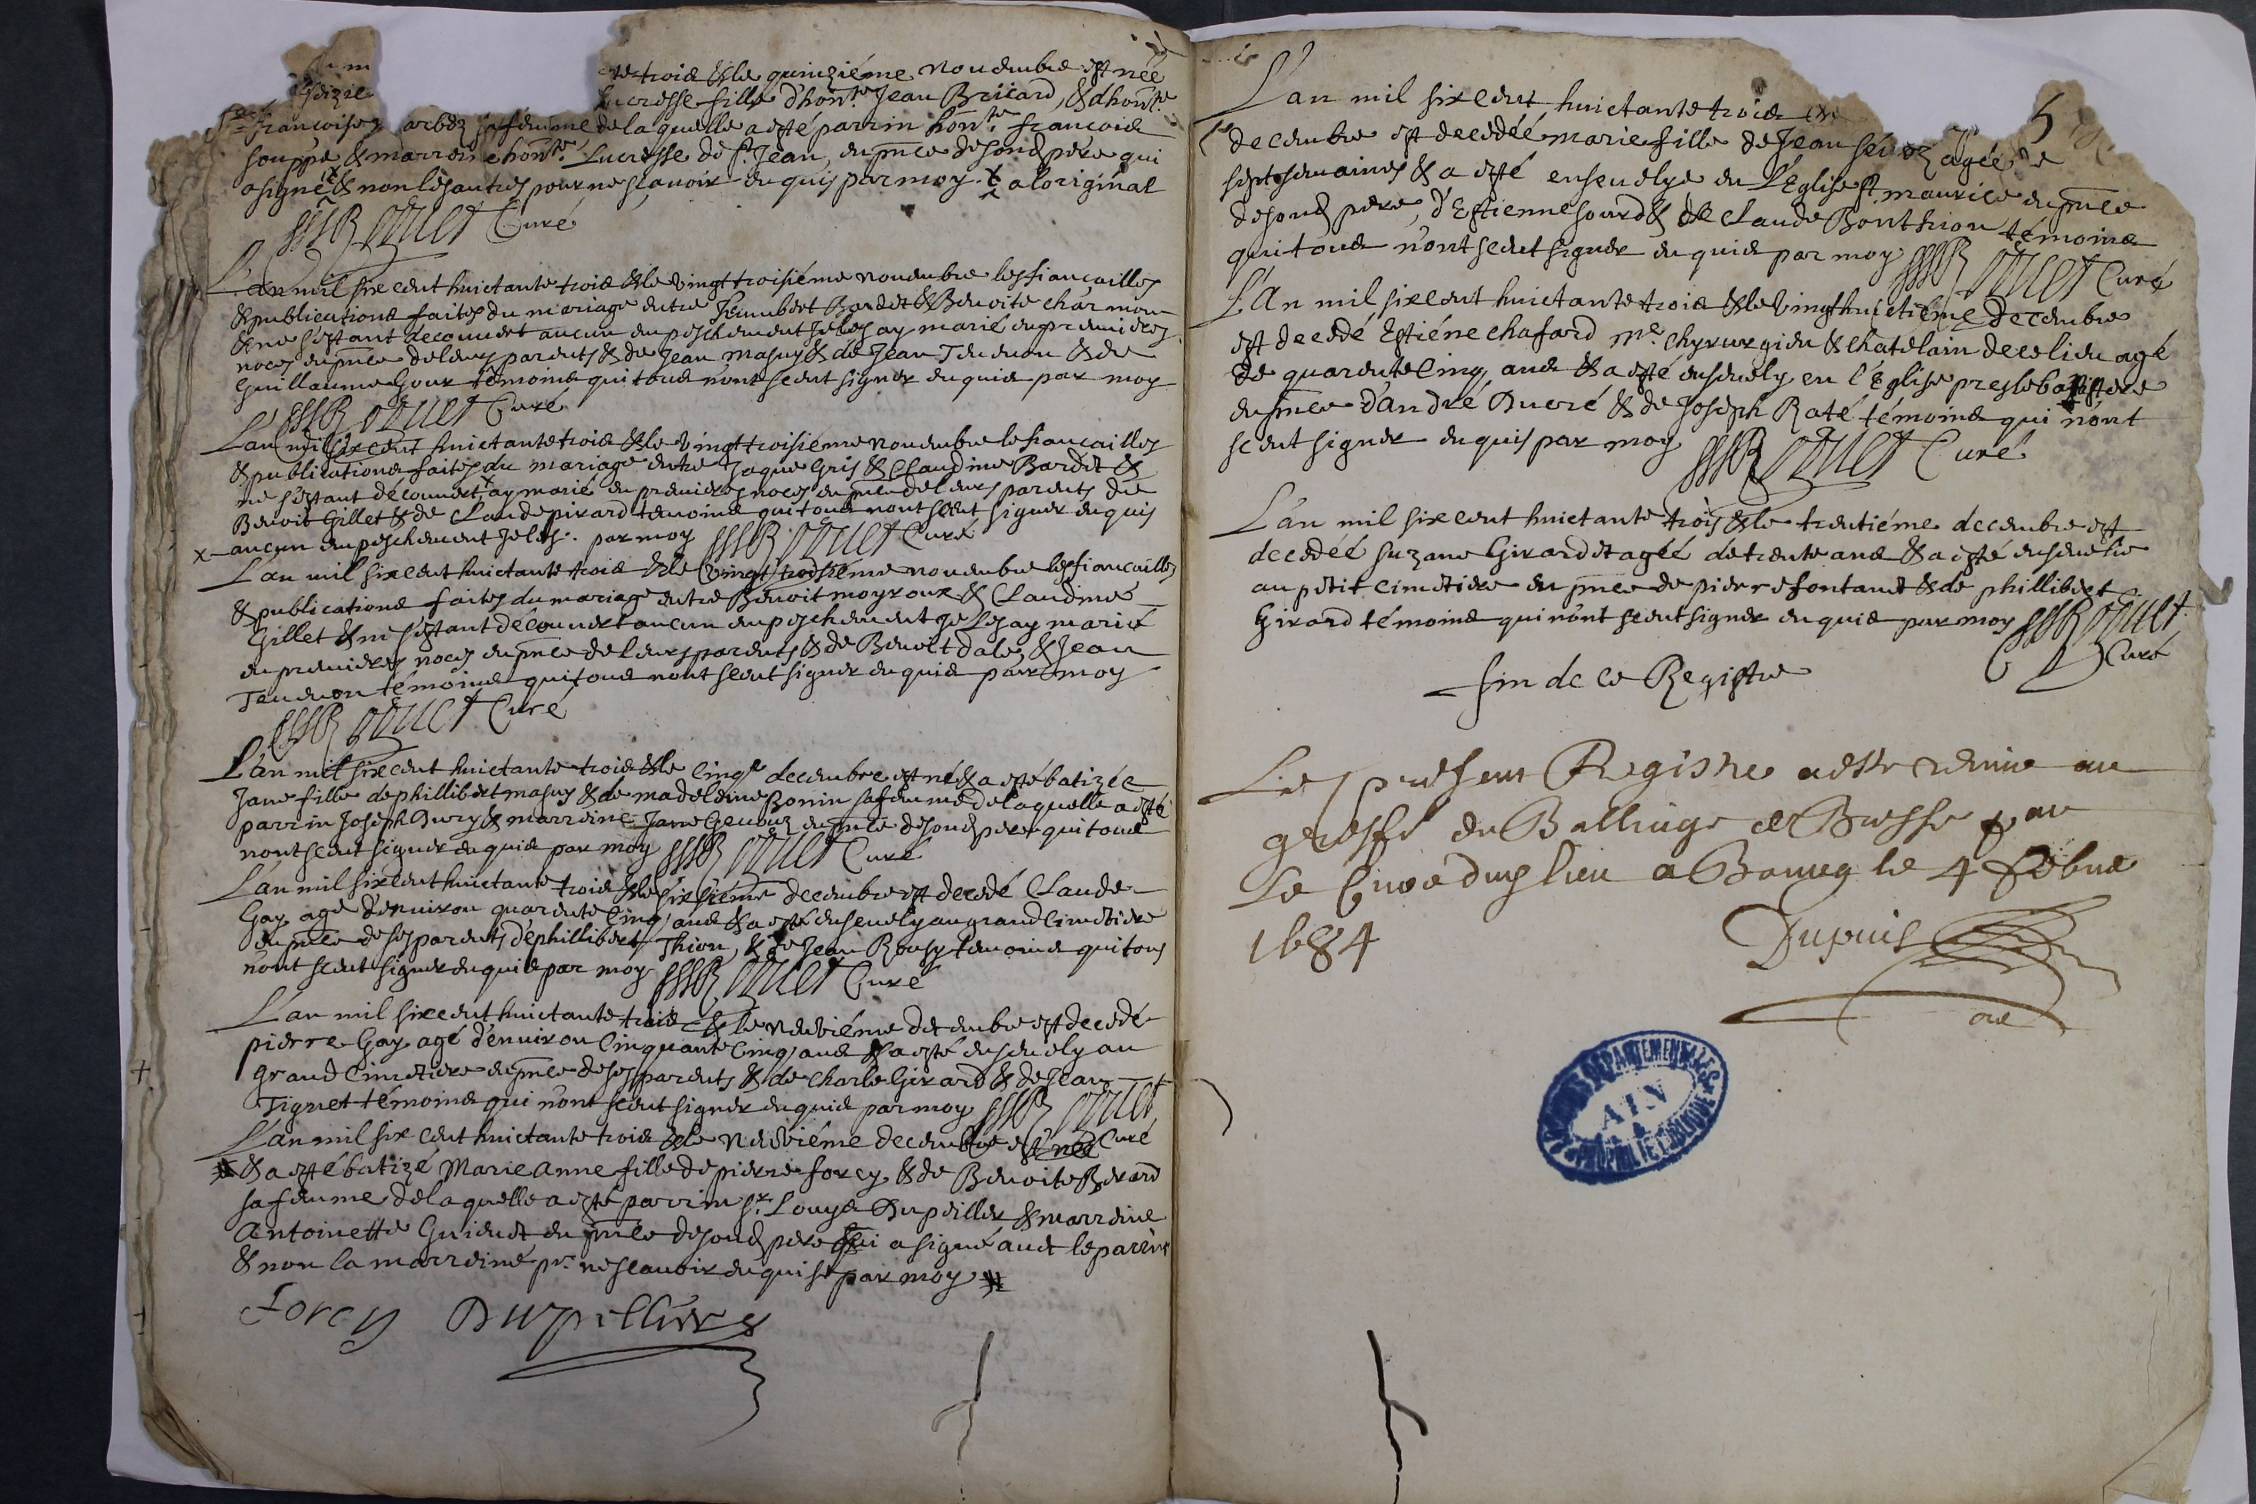 te trois & le quinziéme novembre est née
Lucresse fille d'hon.te Jean Bricard, & d'hon.te
francoise arbez sa femme de laquelle a esté parrin hon.te francois
souppe & marreine hon.te Lucresse de st. Jean, en pnce de sond pére qui
a signé & non les autres pour ne sçavoir enquis par moy x a loriginal
Curé
L'an mil six cent huictante trois & le vingt troisiéme novembre les fiancailles
& publications faites du mariage entre humbert Bardet & Benoite charmon
& ne s'estant decouvert aucun empeschement Je les ay marié en premieres
noces en pnce de leurs parents & de Jean masuy & de Jean Tevenon & de
Guillaume Gour témoins qui tous n'ont sceut signer enquis par moy
Curé
L'an mil six cent huictante trois & le vingt troisiéme novembre les fiancailles
& publications faites du mariage entre Jaque Gris & Claudine Bardet &
ne s'estant découvert x ay marié en premieres noces en pnce de leurs parents de
Benoit Gillet & de Claude pirard temoins qui tous n'ont sceut signer enquis
x aucun empeschement Je les . par moy Curé
L'an mil six cent huictante trois & le vingt troisiéme novembre les fiancailles
& publications faites du mariage entre Benoit moyroux & Claudine
Gillet & ne s'estant découvert aucun empeschement Je les ay marié
en premieres noces en pnce de leurs parents & de Benoit dales & Jean
Tevenon témoins qui tous n'ont sceut signer enquis par moy
Curé
L'an mil six cent huictante trois & le cinqe decembre est né & a esté batizée
Jane fille de phillibert masuy & de madeleine Bonin sa femme de laquelle a esté
parrin Joseph Dury & marreine Jane Genouz en pnce de sond pere qui tous
n'ont sceut signer enquis par moy Curé
L'an mil six cent huictante trois & le sixiéme decembre est decedé Claude
Gay agé d'environ quarente cinq ans & a esté ensevely au grand cimetiere
en pnce de ses parents de phillibert Thion & de Jean Rousy temoins qui tous
n'ont sceut signer enquis par moy Curé
L'an mil six cent huictante trois & le neuviéme decembre est decedé
pierre Gay agé d'environ cinquante cinq ans & a esté ensevely au
grand cimetiere en pnce de ses parents & de Charle Girard & de Jean
Tignet témoins qui n'ont sceut signer enquis par moy
L'an mil six cent huictante trois & le neuviéme decembre est née Curé
& a esté batizé Marie anne fille de pierre forcy & de Benoite Berard
sa femme de laquelle a esté parrin sr. Louys Dupeiller & marreine
Antoinette Guienet en pnce de sond pere qui a signé avec le parrin
& non la marreine pr. ne scavoir enquise par moy
Forcy Dupillier
5
L'an mil six cent huictante trois
decembre est decedéé marie fille de Jean agéé de
sept semaines & a esté ensevelye en L'Eglise st. maurice en pnce
de sond pere, d'Estienne sourd & de Claude Bonthion témoins
qui tous n'ont sceut signer enquis par moy Curé
L'An mil six cent huictante trois & le vingt huictiéme decembre
est decedé Estiéne chafard me. chyrurgien & chatelain de ce lieu agé
de quarente cinq ans & a esté ensevely en l'église pres le batistere
en pnce d'André Ducré & de Joseph Raté témoins qui n'ont
sceut signer enquis par moy Curé
L'an mil six cent huictante trois & le trentiéme decembre est
decedéé suzane Girardit agéé de trente ans & a esté ensevelie
au petit cimetiere en pnce de pierre fontanet & de phillibert
Girard témoins qui n'ont sceut signer enquis par moy
Curé
fin de ce Registre
Le present Registre a este remis au
greffe du Balliage de Bresse par
Le Curé dud lieu a Bourg le 4 febve
1684
Dupuis
ARCHIVES DÉPARTEMENTALES
AIN
PROPRIÉTÉ PUBLIQUE